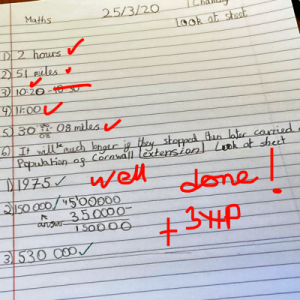 Maths 25/3/20 1 Chall
Look at sheet
1) 2 hours
2) 51 miles
3) 10:20 - 10:50
4) 11:00
5) 30 .08 miles
6) It will much longer if they stopped then later carried
Population of cornwall (extension) Look at sheet
1) 1975
well done!
2) 150000 / 500000
answer 350000
150000
+ 3 HP
3) 530 000